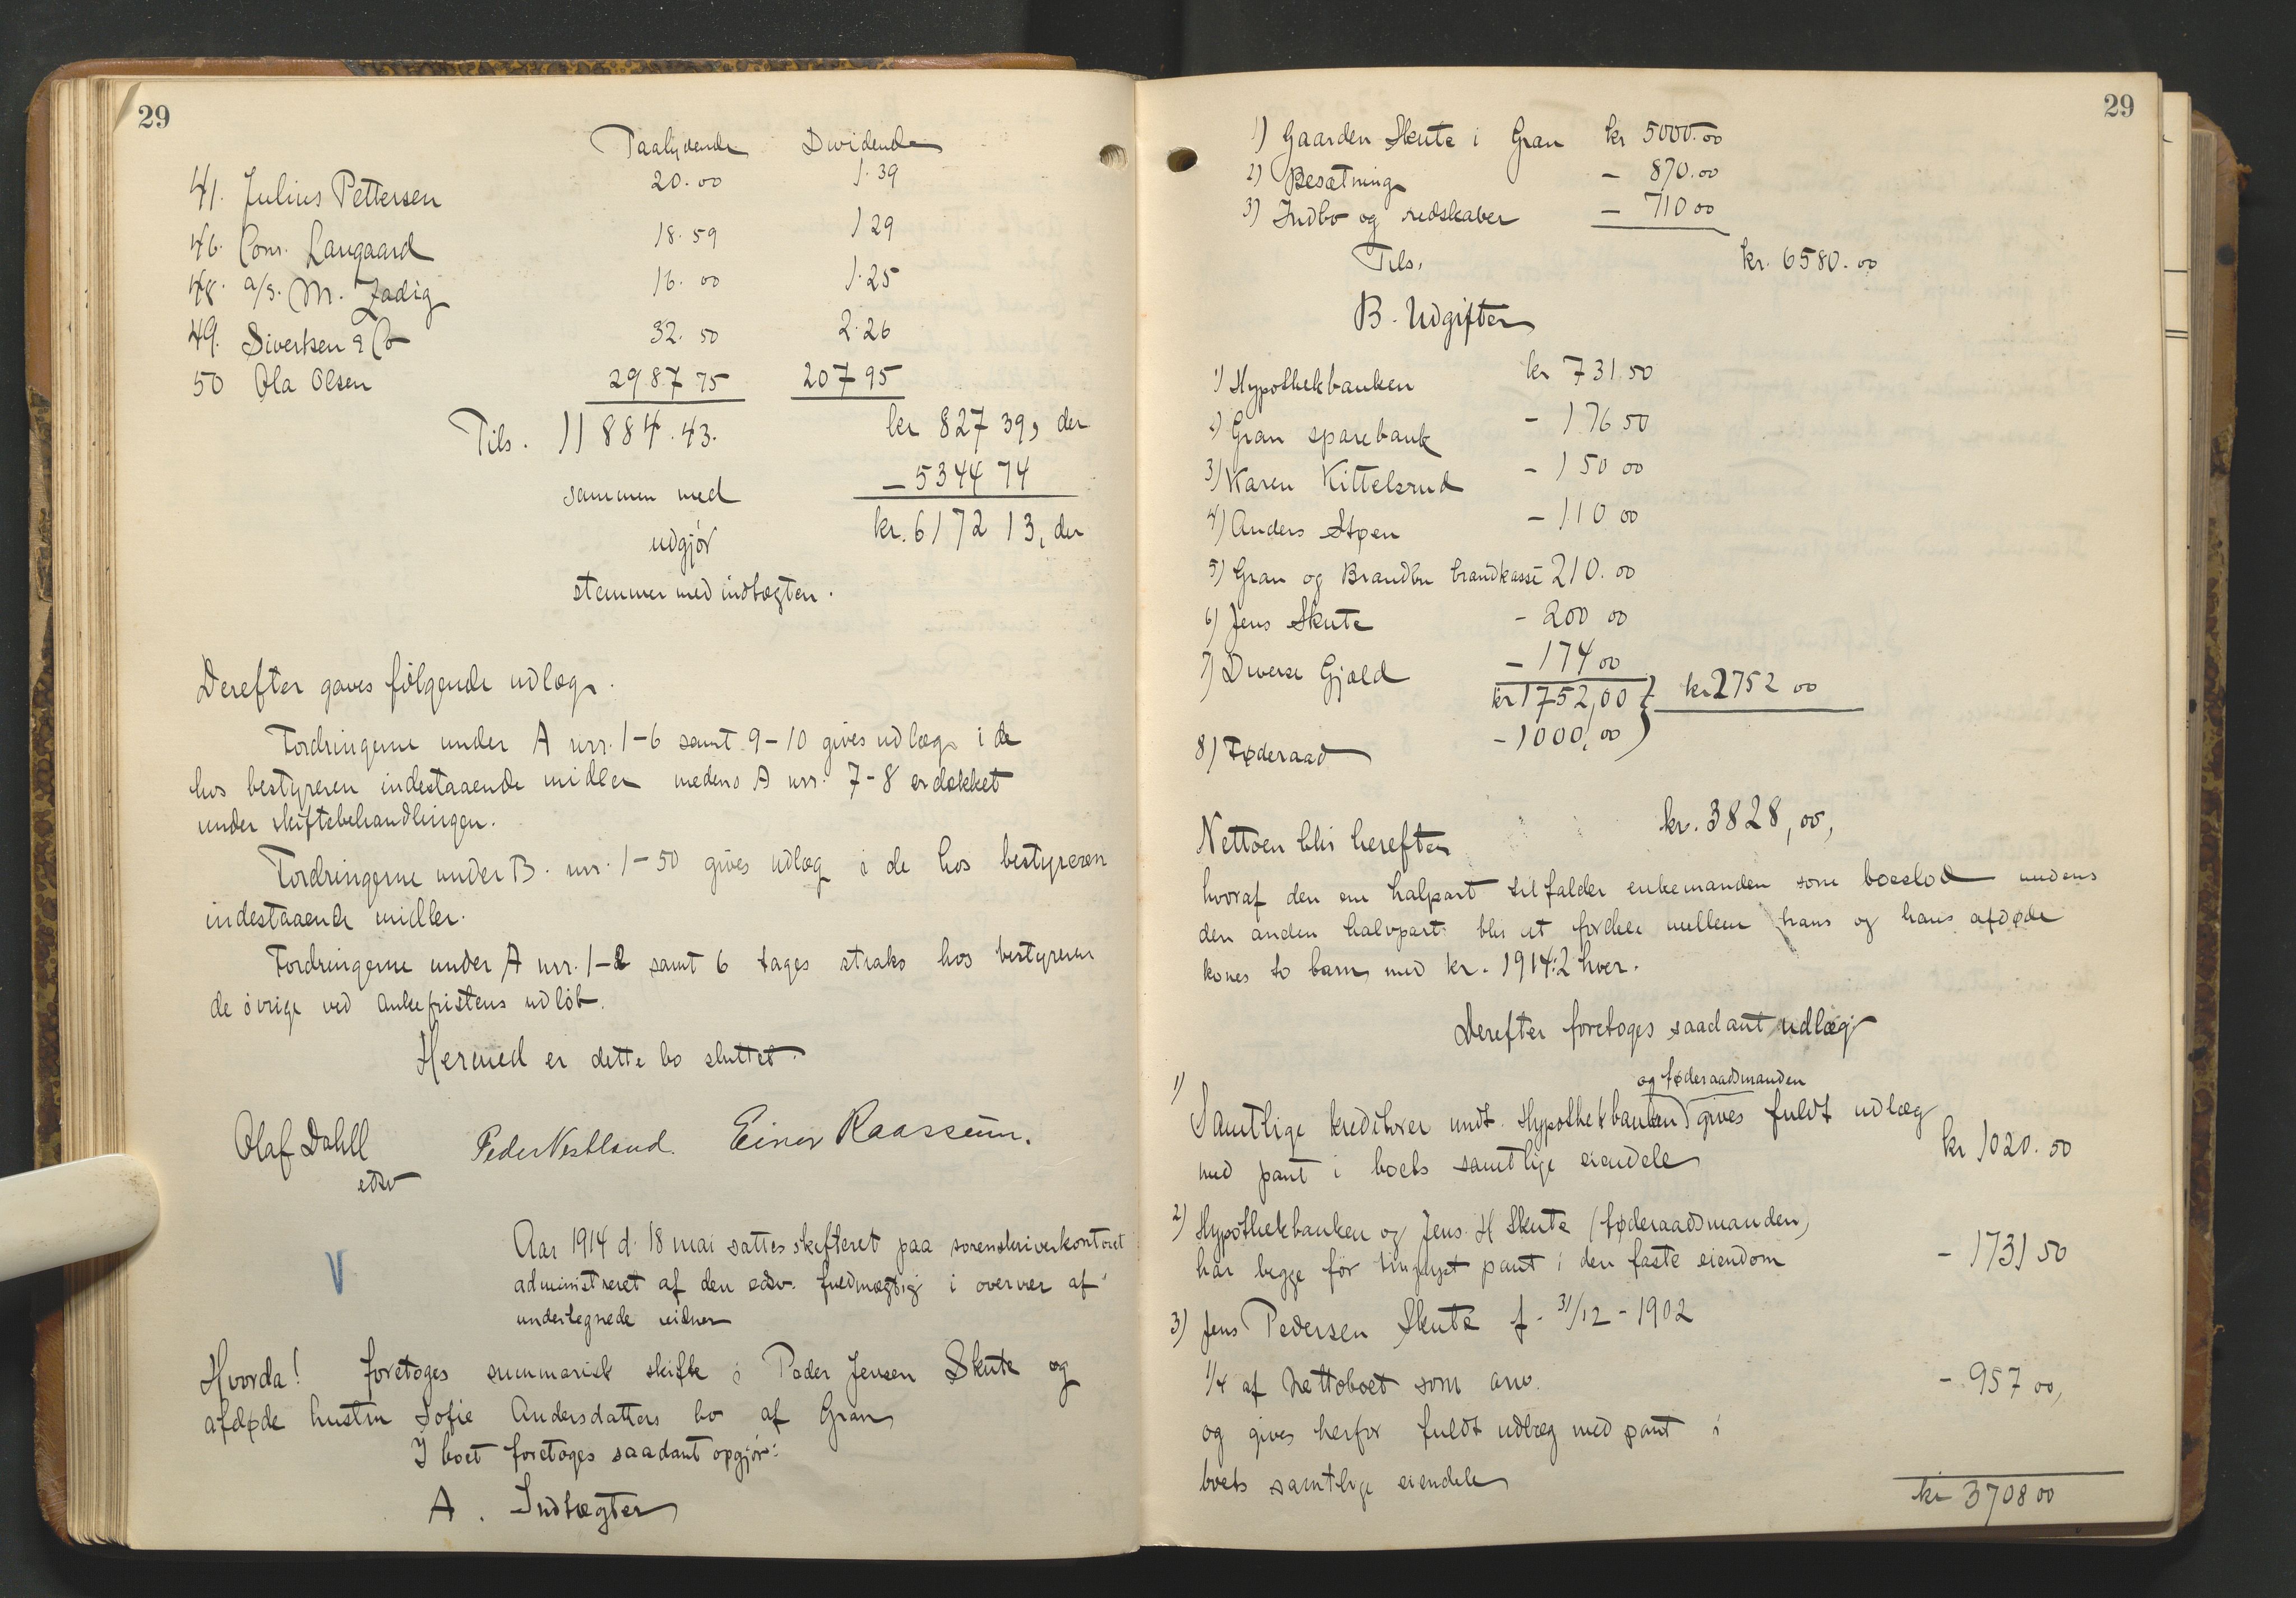 29
Paalydende Dividende
41. Julius Pettersen 20.00 1.39
46. Cons. Langaard 18.59 1 29
48. a/s. M. Zadig 16.00 1.25
49. Sivertsen & Co 32.50 2.26
50 Ola Olsen 2987 75 207 95
Tils. 11884.43. kr 827 39, der
sammen med - 5344 74
udgjør kr. 6172 13, der
stemmer med indtægten.
Derefter gaves følgende udlæg.
Fordringerne under A nrr. 1-6 samt 9-10 gives udlæg i de
hos bestyreren indestaaende midler medens A nrr. 7-8 er dækket
under skiftebehandlingen.
Fordringerne under B. nrr. 1-50 gives udlæg i de hos bestyreren
indestaaende midler.
Fordringerne under A nrr. 1-2 samt 6 tages straks hos bestyreren
de øvrige ved ankefristens udløb.
Hermed er dette bo sluttet.
Olaf Dahll Peder Vestland. Einar Raassum.
edsv
Aar 1914 d. 18 mai sattes skifteret paa sorenskriverkontoret
administreret af den edsv. fuldmægtig i overvær af
undertegnede vidner
V
Hvorda! foretoges summarisk skifte i Peder Jensen Skute og
afdøde hustru Sofie Andersdatters bo af Gran
I boet foretoges saadant opgjør:
A. Indtægter
29
1) Gaarden Skute i Gran kr 5000.00
2) Besætning - 870.00
3) Indbo og redskaber - 710 00
Tils. kr. 6580.00
B. Udgifter
1) Hypothekbanken kr 731.50
2) Gran sparebank - 176 50
3) Karen Kittelsrud - 150 00
4) Anders Støen - 110 00
5) Gran og Brandbu brandkasse 210.00
6) Jens Skute - 200 00
7) Diverse Gjæld - 174 00
kr 1752,00 } kr 2752 00
8) Føderaad - 1000,00
Nettoen blir herefter kr. 3828,00,
hvoraf den ene halpart tilfalder enkemanden som boeslod medens
den anden halvpart blir at fordele mellem hans og hans afdøde
kones to barn med kr. 1914:2 hver.
Derefter foretoges saadant udlæg
og føderaadsmanden
1) Samtlige kreditorer undt. Hypothekbanken gives fuldt udlæg
med pant i boets samtlige eiendele kr 1020.50
2) Hypothekbanken og Jens H Skute (føderaadsmanden)
har begge før tinglyst pant i den faste eiendom - 1731 50
3) Jens Pedersen Skute f. 31/12-1902
1/4 af Nettoboet som arv. - 957 00,
og gives herfor fuldt udlæg med pant i
boets samtlige eiendele
kr 3708 00